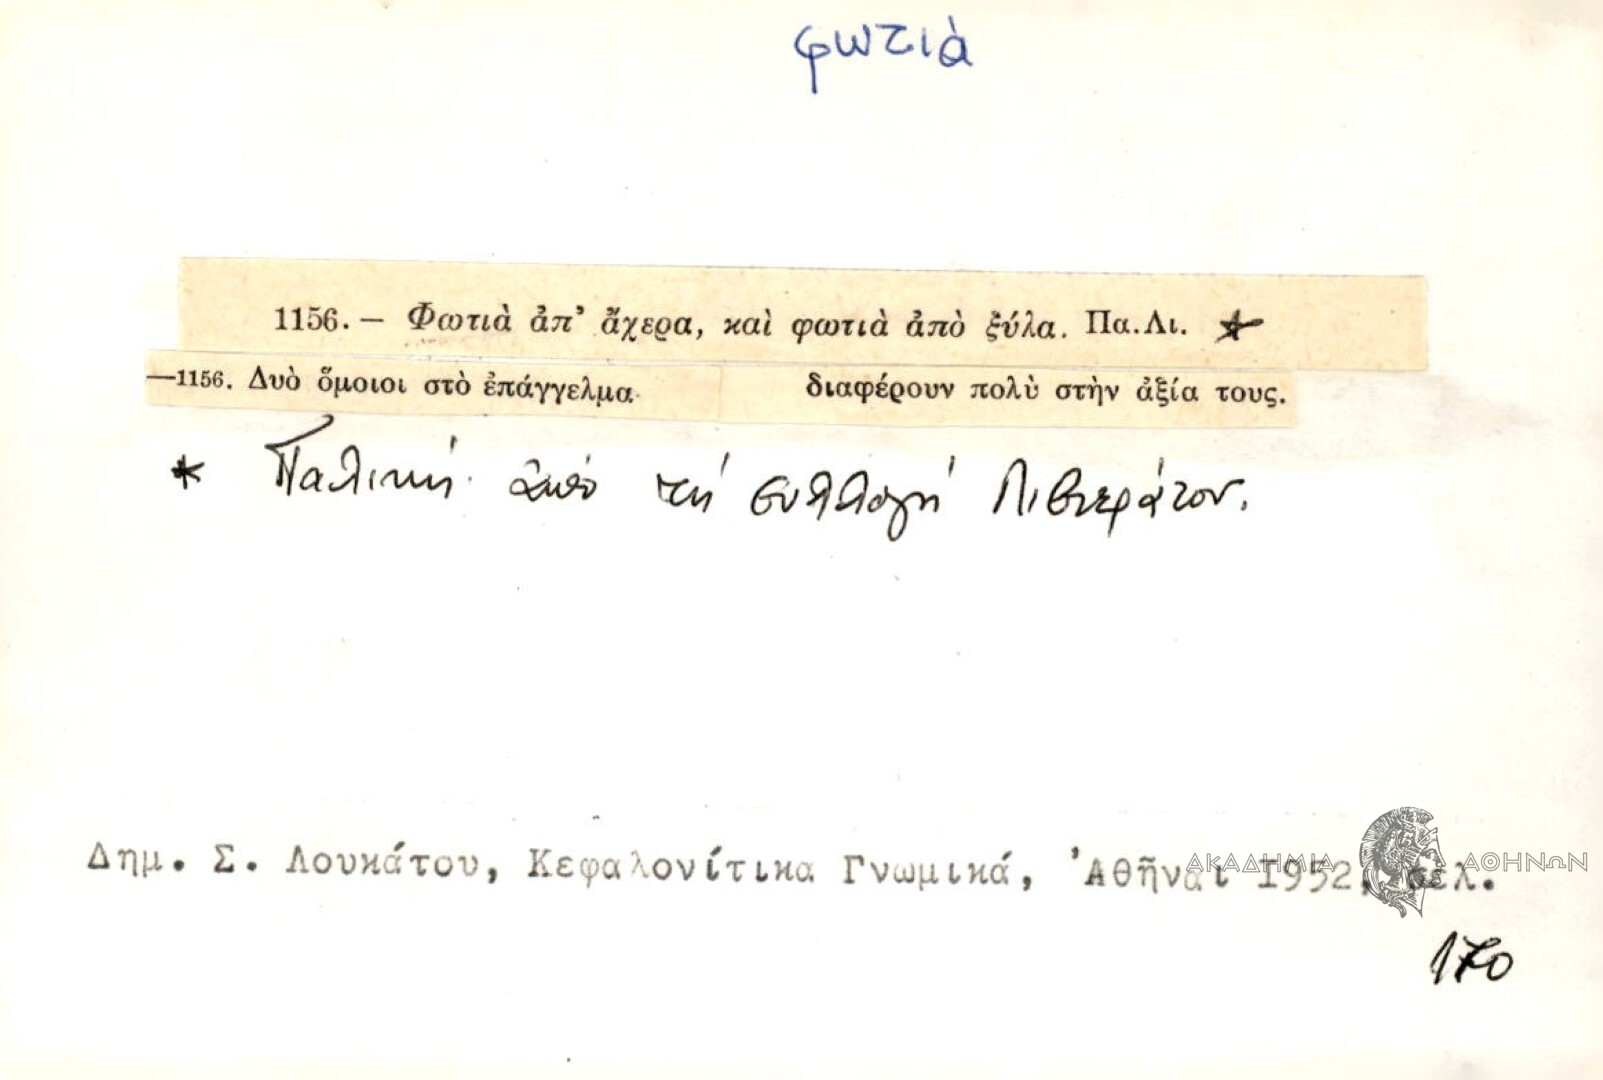 φωτιὰ
1156. — Φωτιὰ ἀπ' ἄχερα, καὶ φωτιὰ ἀπὸ ξύλα. Πα.Λι. *
—1156. Δυὸ ὅμοιοι στὸ ἐπάγγελμα διαφέρουν πολὺ στὴν ἀξία τους.
* Παλική ἀπὸ τή συλλογή Λιβιεράτου.
Δημ. Σ. Λουκάτου, Κεφαλονίτικα Γνωμικά, Ἀθῆναι 1952, σελ.
170
ΑΚΑΔΗΜΙΑ ΑΘΗΝΩΝ